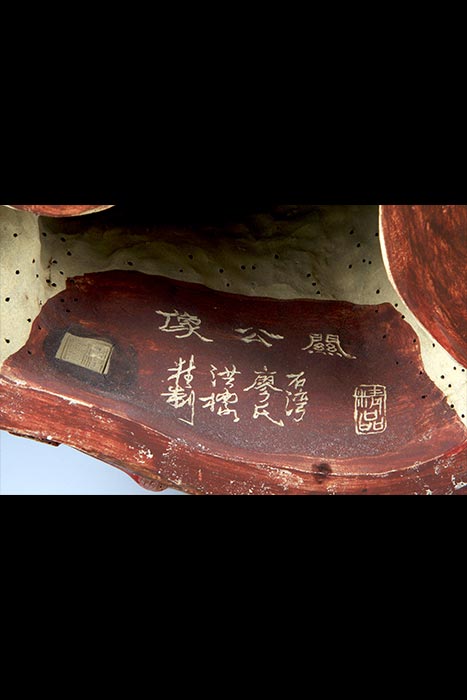 關公像
石湾
廖氏
洪標
精制
精品